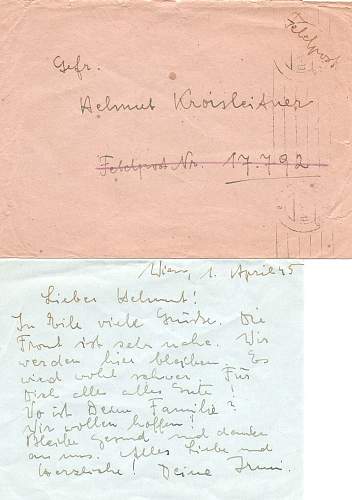 Feldpost
Gefr.
Helmut Kroisleitner
Feldpost Nr. 17.792
Wien, 1. April 45
Lieber Helmut!
In Eile viele Grüße. Die
Front ist sehr nahe. Wir
werden hier bleiben. Es
wird wohl schwer. Für
Dich alles alles Gute!
Wo ist Deine Familie?
Wir wollen hoffen!
Bleibe gesund und denke
an uns. Alles Liebe und
Herzliche! Deine Irmi.